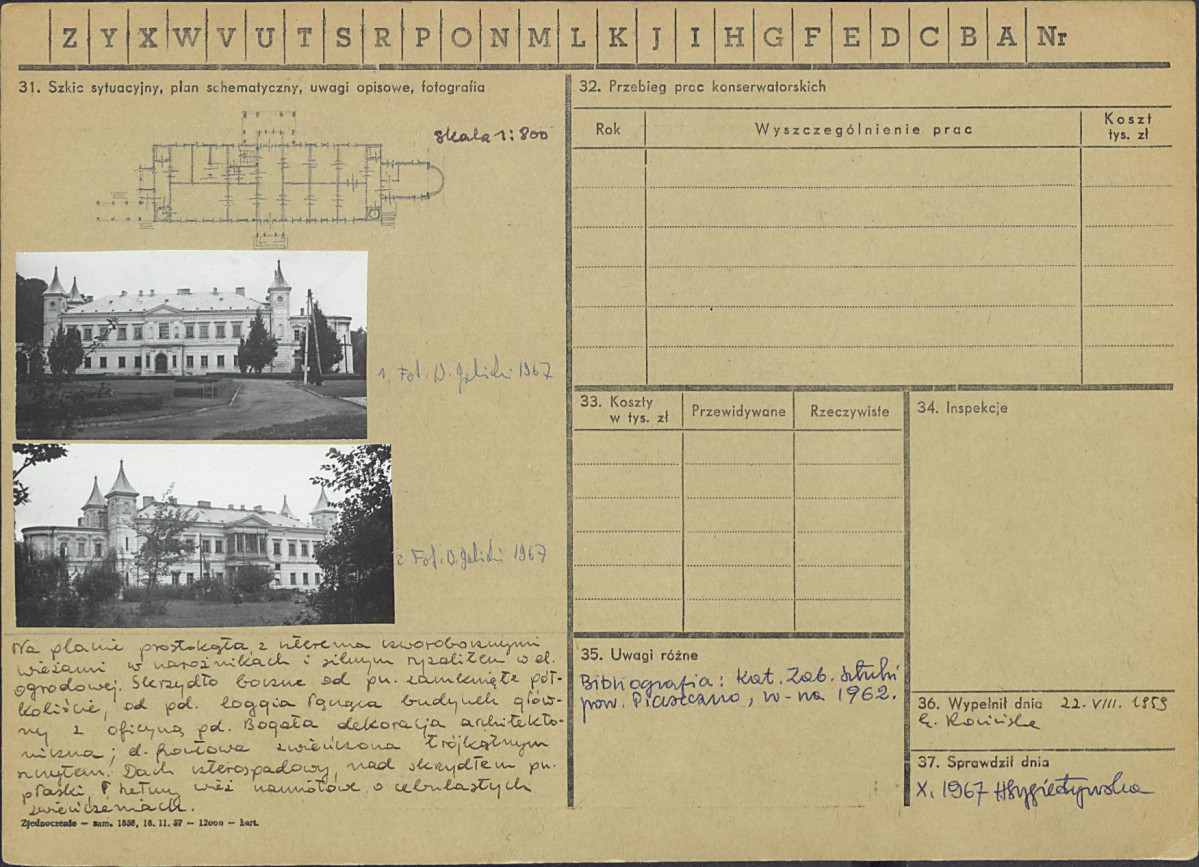 Z Y X W V U T S R P O N M L K J I H G F E D C B A Nr
31. Szkic sytuacyjny, plan schematyczny, uwagi opisowe, fotografia
skala 1:800
1, Fot. 1967
2 Fot. 1967
Na planie prostokąta, z czterema czworobocznymi
wieżami w narożnikach i silnym ryzalitem w el.
ogrodowej. Skrzydło boczne od pn. zamknięte pół-
koliście, od pd. loggia łącząca budynek głów-
ny z oficyną pd. Bogata dekoracja architekto-
niczna; el. frontowa zwieńczona trójkątnym
szczytem. Dach czterospadowy, nad skrzydłem pn.
płaski, hełmy wież namiotowe o cebulastych
zwieńczeniach.
Zjednoczenie — zam. 1658, 16. 11. 57 — 12000 — kart.
32. Przebieg prac konserwatorskich
Rok Wyszczególnienie prac Koszt
tys. zł
33. Koszty
w tys. zł Przewidywane Rzeczywiste
34. Inspekcje
35. Uwagi różne
Bibliografia: Kat. Zab. Sztuki
pow. Piaseczno, w-wa 1962.
36. Wypełnił dnia 22. VIII. 1959
37. Sprawdził dnia
X. 1967